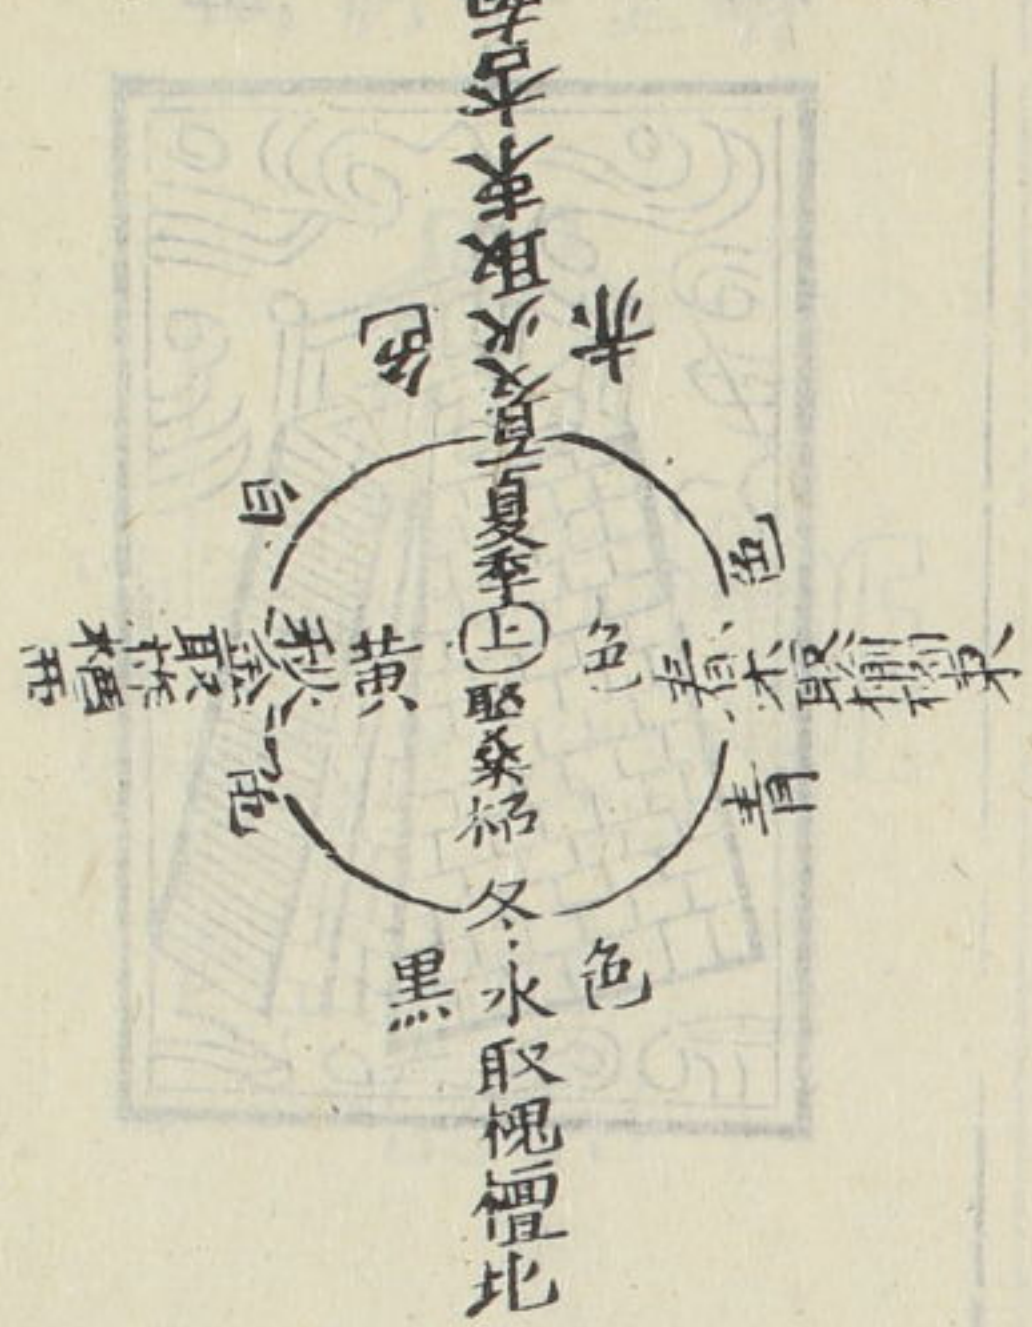 夏火取棗杏南
赤色
春木取榆柳東
青色
季夏土取桑柘
黄色
秋金取柞楢西
白色
冬水取槐檀北
黒色